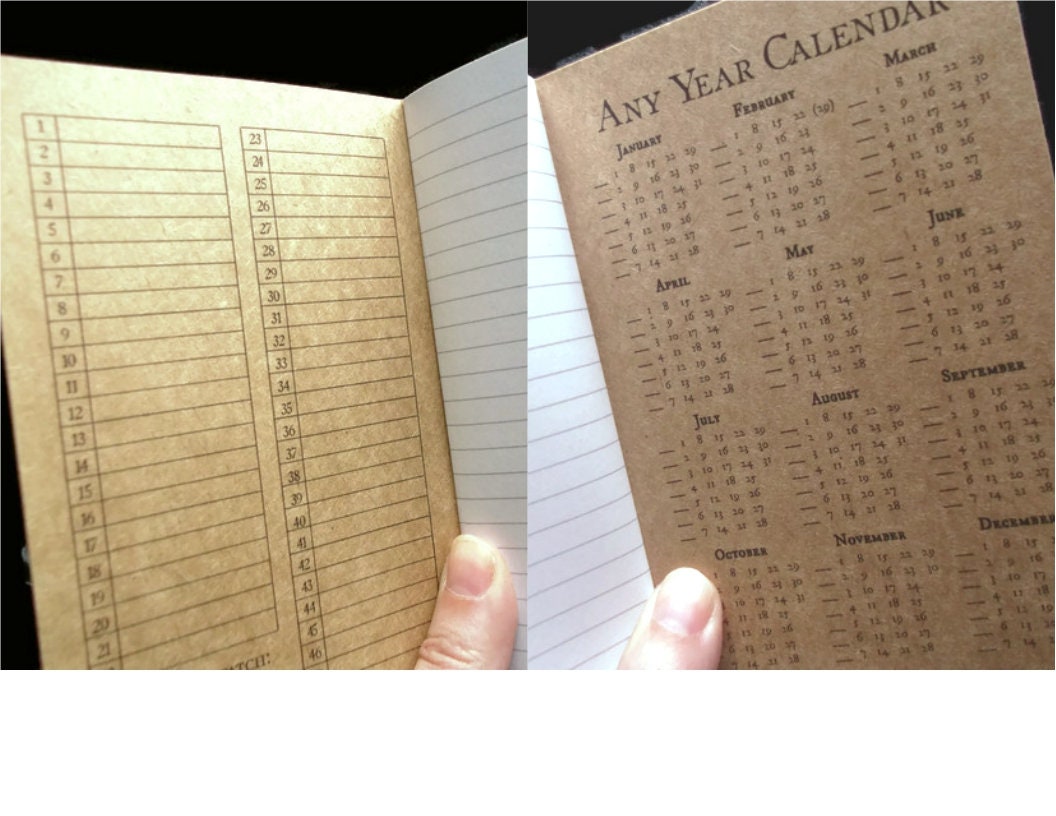 1
2
3
4
5
6
7
8
9
10
11
12
13
14
15
16
17
18
19
20
21
23
24
25
26
27
28
29
30
31
32
33
34
35
36
37
38
39
40
41
42
43
44
45
46
ANY YEAR CALENDAR
JANUARY
1 8 15 22 29
2 9 16 23 30
3 10 17 24 31
4 11 18 25
5 12 19 26
6 13 20 27
7 14 21 28
FEBRUARY
1 8 15 22 (29)
2 9 16 23
3 10 17 24
4 11 18 25
5 12 19 26
6 13 20 27
7 14 21 28
MARCH
1 8 15 22 29
2 9 16 23 30
3 10 17 24 31
4 11 18 25
5 12 19 26
6 13 20 27
7 14 21 28
APRIL
1 8 15 22 29
2 9 16 23 30
3 10 17 24
4 11 18 25
5 12 19 26
6 13 20 27
7 14 21 28
MAY
1 8 15 22 29
2 9 16 23 30
3 10 17 24 31
4 11 18 25
5 12 19 26
6 13 20 27
7 14 21 28
JUNE
1 8 15 22 29
2 9 16 23 30
3 10 17 24
4 11 18 25
5 12 19 26
6 13 20 27
7 14 21 28
JULY
1 8 15 22 29
2 9 16 23 30
3 10 17 24 31
4 11 18 25
5 12 19 26
6 13 20 27
7 14 21 28
AUGUST
1 8 15 22 29
2 9 16 23 30
3 10 17 24 31
4 11 18 25
5 12 19 26
6 13 20 27
7 14 21 28
SEPTEMBER
1 8 15 22
2 9 16 23
3 10 17 24
4 11 18 25
5 12 19 26
6 13 20 27
7 14 21 28
OCTOBER
1 8 15 22 29
2 9 16 23 30
10 17 24 31
11 18 25
12 19 26
6 13 20 27
7 14 21 28
NOVEMBER
1 8 15 22 29
2 9 16 23 30
3 10 17 24
4 11 18 25
5 12 19 26
6 13 20 27
7 14 21 28
DECEMBER
1 8 15
2 9 16
3 10 17
4 11 18
5 12 19
6 13 20
7 14 21